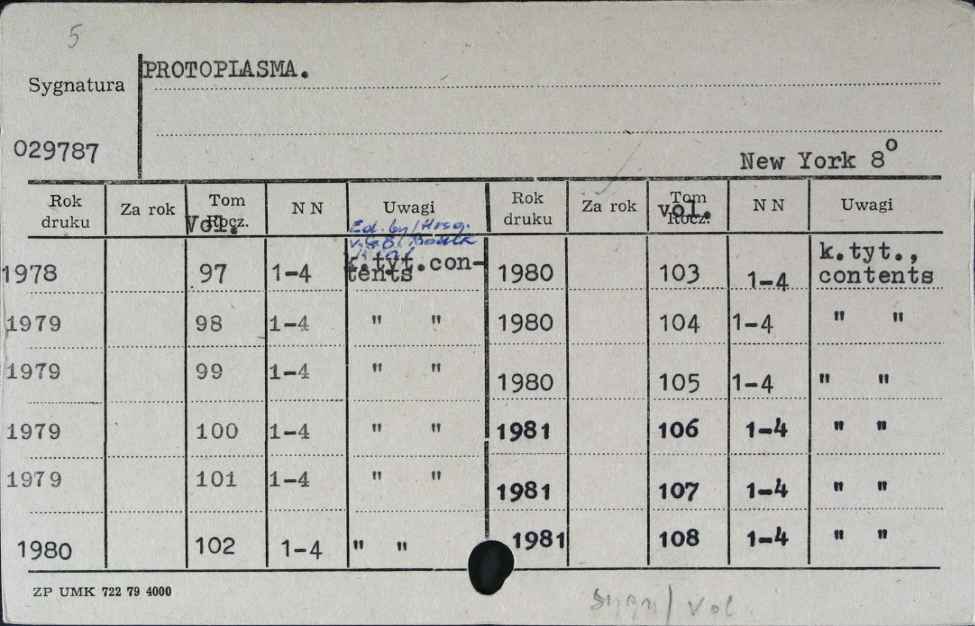 5
Sygnatura
PROTOPLASMA.
029787
New York 8o
Rok druku Za rok Tom Rocz. Vol. N N Uwagi Rok druku Za rok Tom Rocz. vol. N N Uwagi
Ed. by/Hrsg.
1978 97 1-4 k.tyt.contents 1980 103 1-4 k.tyt., contents
1979 98 1-4 " " 1980 104 1-4 " "
1979 99 1-4 " " 1980 105 1-4 " "
1979 100 1-4 " " 1981 106 1-4 " "
1979 101 1-4 " " 1981 107 1-4 " "
1980 102 1-4 " " 1981 108 1-4 " "
ZP UMK 722 79 4000
Sygn/ Vol